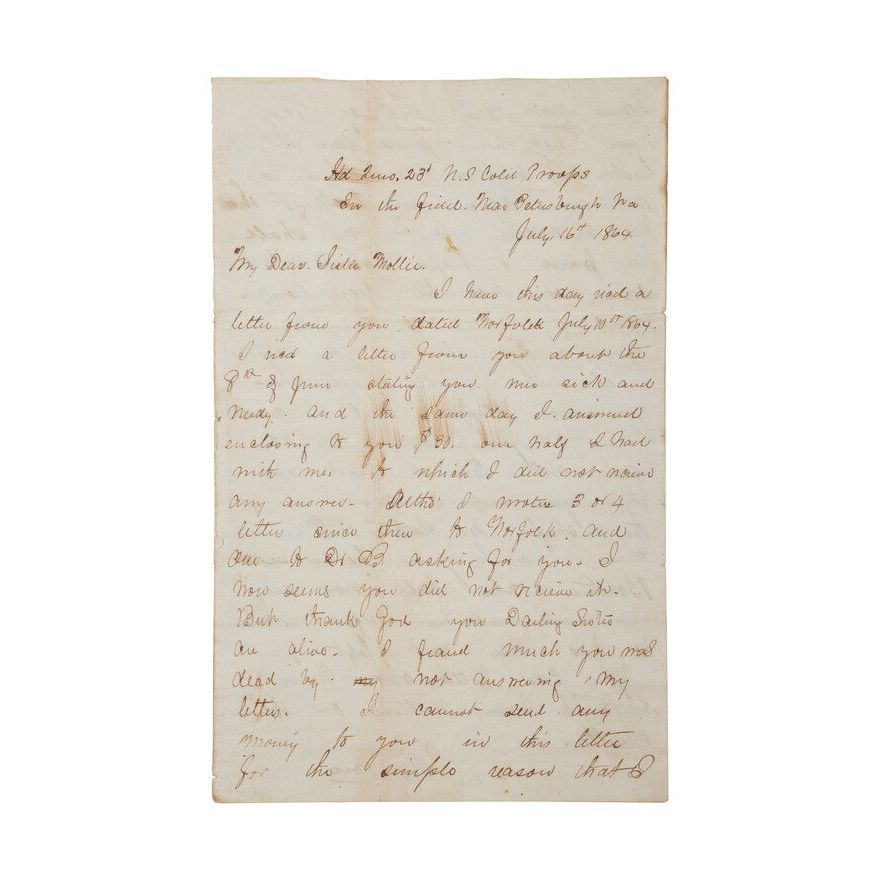 Hd Qrs. 23d U.S Cold Troops
In the field. Near Petersburgh Va
July 16th 1864
My Dear Sister Mollie.
I have this day rec'd a
letter from you dated Norfolk July 10th 1864.
I recd a letter from you about the
8th of June stating you were sick and
needy. and the same day I answered
enclosing to you $30. one half I had
with me. to which I did not receive
any answer. Altho I wrote 3 or 4
letter since then to Norfolk. and
one to Dr B. asking for you. I
now seems you did not recieve it.
But thank God you Darling Sister
are alive. I feared much you was
dead by my not answering my
letter. I cannot send any
money to you in this letter
for the simple reason that I